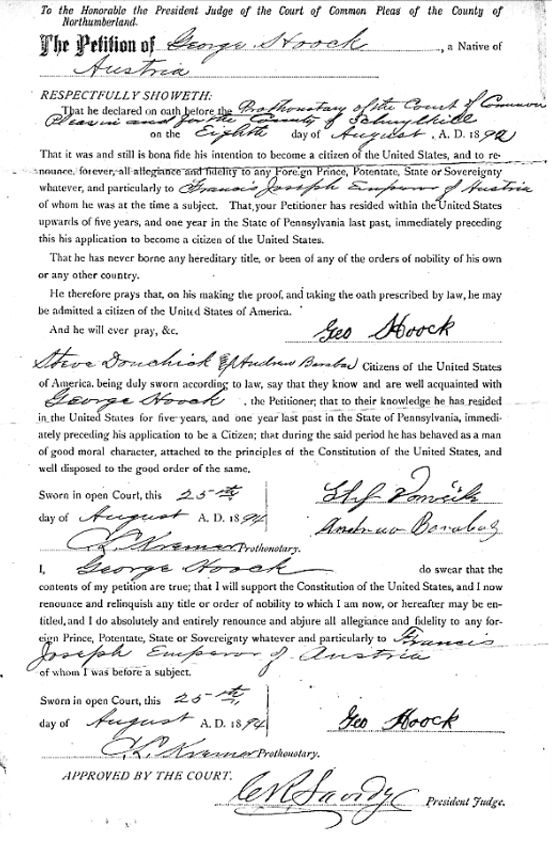 To the Honorable the President Judge of the Court of Common Pleas of the County of
Northumberland.
The Petition of George Hoock, a Native of
Austria
RESPECTFULLY SHOWETH:
That he declared on oath before the Prothonotary of the Court of Common
Pleas in and for the County of Schuylkill
on the Eighth day of August, A. D. 1892
That it was and still is bona fide his intention to become a citizen of the United States, and to re-
nounce, forever, all allegiance and fidelity to any Foreign Prince, Potentate, State or Sovereignty
whatever, and particularly to Francis Joseph Emperor of Austria
of whom he was at the time a subject. That, your Petitioner has resided within the United States
upwards of five years, and one year in the State of Pennsylvania last past, immediately preceding
this his application to become a citizen of the United States.
That he has never borne any hereditary title, or been of any of the orders of nobility of his own
or any other country.
He therefore prays that, on his making the proof, and taking the oath prescribed by law, he may
be admitted a citizen of the United States of America.
And he will ever pray, &c.
Geo Hoock
Steve Donchick & Andrew Barabas Citizens of the United States
of America, being duly sworn according to law, say that they know and are well acquainted with
George Hoock, the Petitioner; that to their knowledge he has resided
in the United States for five years, and one year last past in the State of Pennsylvania, immedi-
ately preceding his application to be a Citizen; that during the said period he has behaved as a man
of good moral character, attached to the principles of the Constitution of the United States, and
well disposed to the good order of the same.
Sworn in open Court, this 25th
day of August A. D. 1894
Andrew Barabas
C. L. Kremer Prothonotary.
I, George Hoock do swear that the
contents of my petition are true; that I will support the Constitution of the United States, and I now
renounce and relinquish any title or order of nobility to which I am now, or hereafter may be en-
titled, and I do absolutely and entirely renounce and abjure all allegiance and fidelity to any for-
eign Prince, Potentate, State or Sovereignty whatever and particularly to Francis
Joseph Emperor of Austria
of whom I was before a subject.
Sworn in open Court, this 25th
day of August A. D. 1894
Geo Hoock
C. L. Kremer Prothonotary.
APPROVED BY THE COURT.
President Judge.